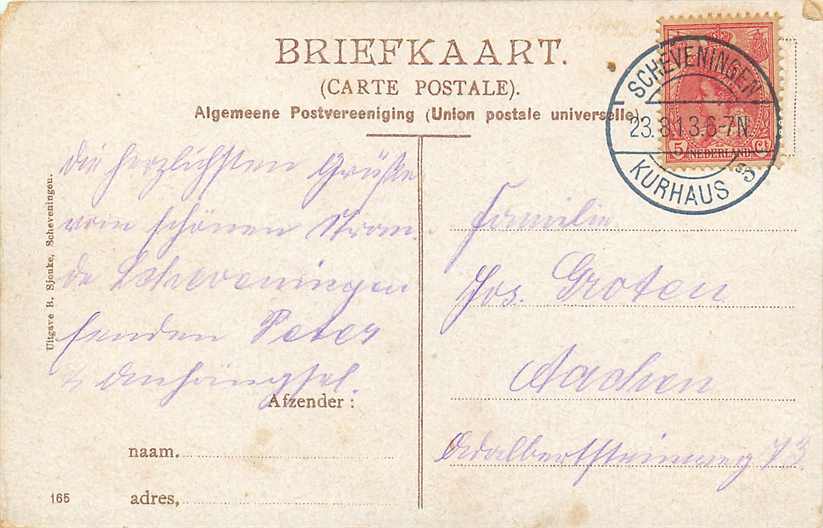 BRIEFKAART.
(CARTE POSTALE).
Algemeene Postvereeniging (Union postale universelle)
SCHEVENINGEN
23.8.13.6-7N.
KURHAUS
5 Ct
NEDERLAND
die herzlichsten Grüße
vom schönen Stran-
de Scheveningen
senden Peter
& Anhängsel.
Familie
Jos. Groten
Aachen
Adalbertsteinweg 73
Afzender:
naam.
adres,
165
Uitgave R. Sjouke, Scheveningen.